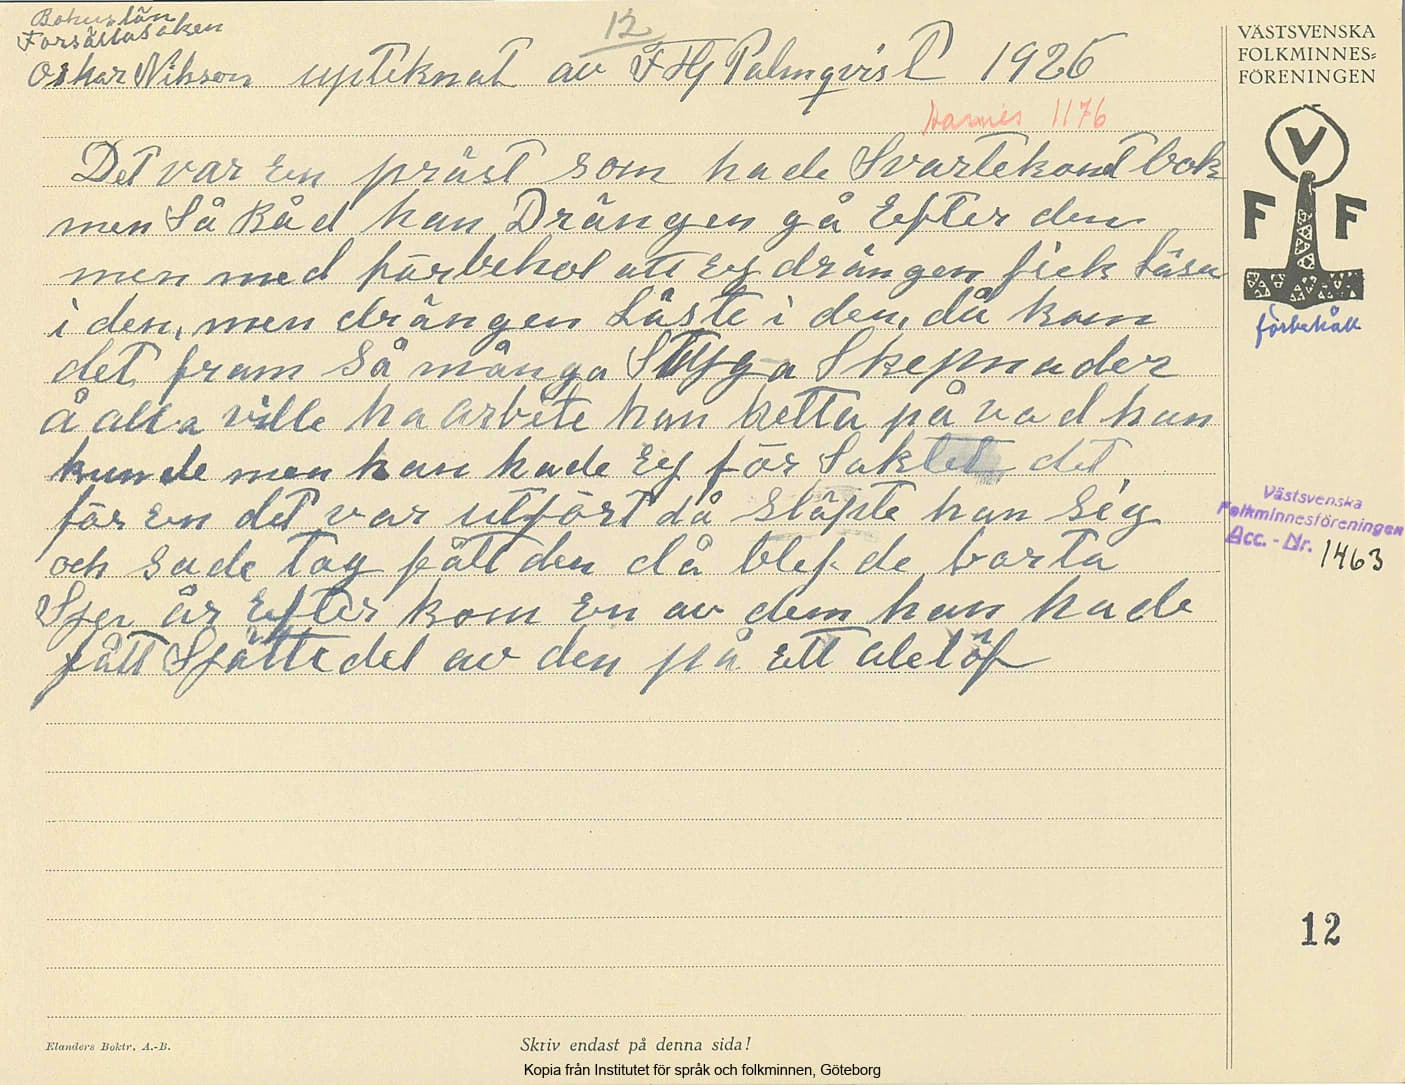 Bohuslän
12
Forsällasoken
Oskar Nilsson upteknat av F Hj Palmqvist 1926
Hamnes 1176
Det var En präst som hade Svartekonst bok
men Så Båd han Drängen gå Efter den
men med förbehol att Ey drängen fick Läsa
i den, men drängen Läste i den, då kom
det fram Så många Stÿga Skepnader
å alla ville ha arbete han hetta på vad han
kunde men han hade Ey för Saktet det
för En det var utfört då släpte han Sig
och Sade tag fatt den då blef de borta
Sjer år Efter kom En av dem han hade
fått Sjätte del av den på Ett alelöf
VÄSTSVENSKA
FOLKMINNES=
FÖRENINGEN
V
F F
förbehåll
Västsvenska
Folkminnesföreningen
Acc. - Nr. 1463
12
Elanders Boktr. A.-B.
Skriv endast på denna sida!
Kopia från Institutet för språk och folkminnen, Göteborg